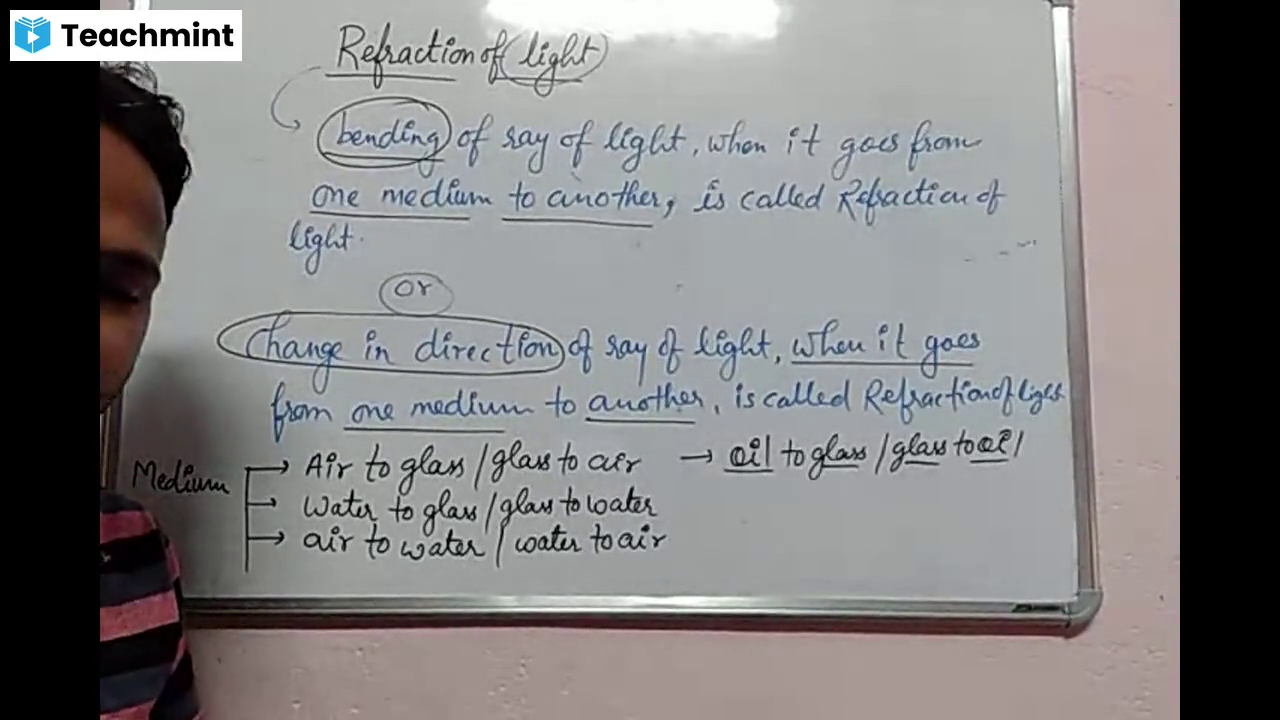 Teachmint
Refraction of light
bending of ray of light, when it goes from
one medium to another, is called Refraction of
light.
or
Change in direction of ray of light, when it goes
from one medium to another, is called Refraction of light
Medium → Air to glass / glass to air → oil to glass / glass to oil
→ Water to glass / glass to water
→ air to water / water to air